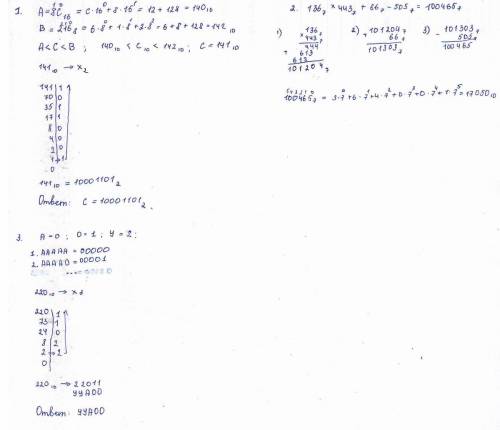 1. A = 8C₁₆ = C·16⁰ + 8·16¹ = 12 + 128 = 140₁₀
B = 216₈ = 6·8⁰ + 1·8¹ + 2·8² = 6 + 8 + 128 = 142₁₀
A < C < B ; 140₁₀ < C₁₀ < 142₁₀ ; C = 141₁₀
141₁₀ → x₂
141 | 1
70 | 0
35 | 1
17 | 1
8 | 0
4 | 0
2 | 0
1 → 1
0
141₁₀ = 10001101₂
Ответ: C = 10001101₂.
2. 136₇ × 443₇ + 66₇ − 505₇ = 100465₇
1) 136₇
443₇
444
+ 613
613
101204₇
2) 101204₇
66₇
101303₇
3) 101303₇
505₇
100465
100465₇ = 5·7⁰ + 6·7¹ + 4·7² + 0·7³ + 0·7⁴ + 1·7⁵ = 17050₁₀
3. А = 0 ; О = 1 ; У = 2 ;
1. ААААА = 00000
2. ААААО = 00001
220₁₀ → x₃
220 | 1
73 | 1
24 | 0
8 | 2
2 → 2
0
220₁₀ → 22011
УУАОО
Ответ: УУАОО